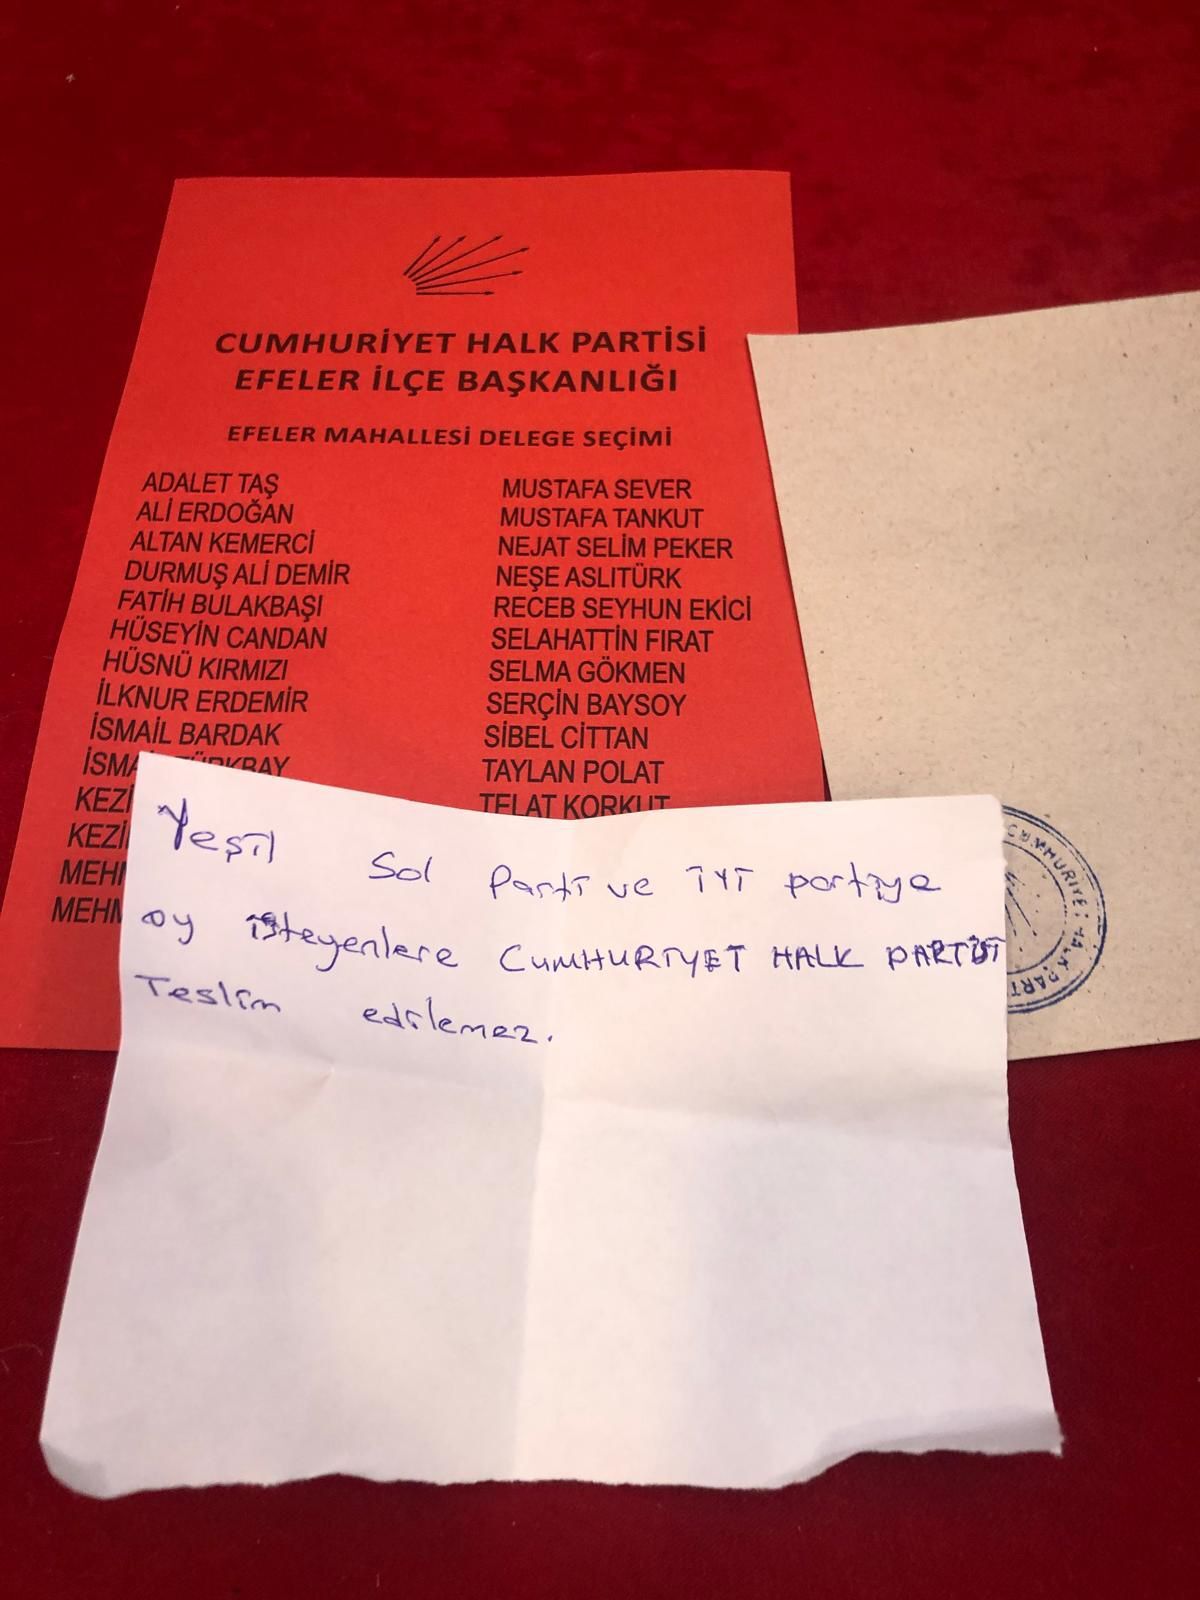 CUMHURİYET HALK PARTİSİ
EFELER İLÇE BAŞKANLIĞI
EFELER MAHALLESİ DELEGE SEÇİMİ
ADALET TAŞ
ALİ ERDOĞAN
ALTAN KEMERCİ
DURMUŞ ALİ DEMİR
FATİH BULAKBAŞI
HÜSEYİN CANDAN
HÜSNÜ KIRMIZI
İLKNUR ERDEMİR
İSMAİL BARDAK
İSMAİL TÜRKBAY
KEZİ
KEZİ
MEHM
MEHM
MUSTAFA SEVER
MUSTAFA TANKUT
NEJAT SELİM PEKER
NEŞE ASLITÜRK
RECEB SEYHUN EKİCİ
SELAHATTİN FIRAT
SELMA GÖKMEN
SERÇİN BAYSOY
SİBEL CİTTAN
TAYLAN POLAT
TELAT KORKUT
Yeşil Sol Parti ve İYİ partiye
oy isteyenlere CUMHURİYET HALK PARTİSİ
Teslim edilemez.
CUMHURİYET HALK PARTİ